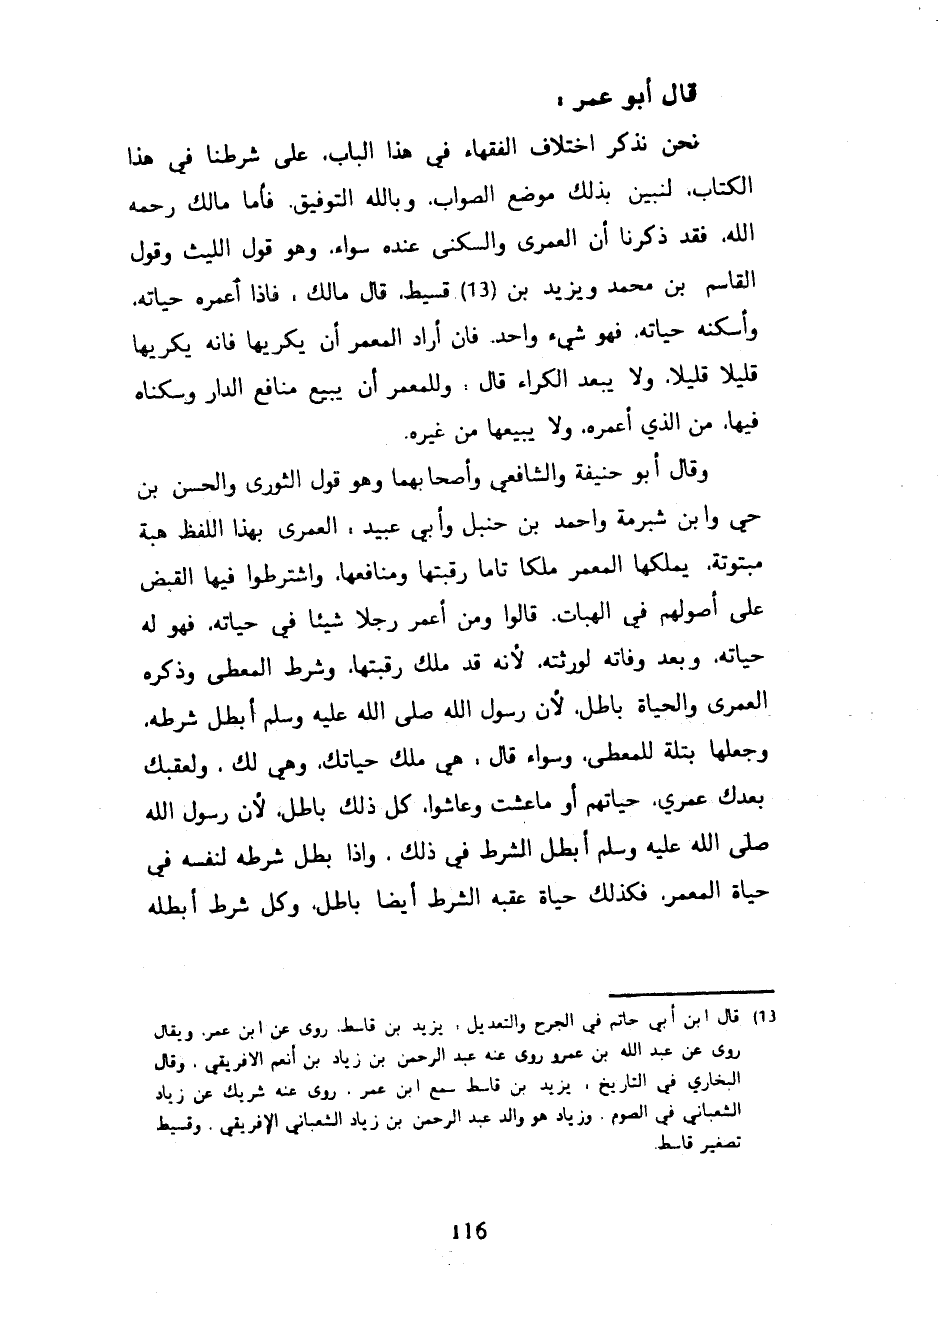 قال أبو عمر :
نحن نذكر اختلاف الفقهاء في هذا الباب، على شرطنا في هذا
الكتاب، لنبين بذلك موضع الصواب، وبالله التوفيق. فأما مالك رحمه
الله، فقد ذكرنا أن العمرى والسكنى عنده سواء، وهو قول الليث وقول
القاسم بن محمد ويزيد بن (13) قسيط، قال مالك : فاذا أعمره حياته،
وأسكنه حياته، فهو شيء واحد. فان أراد المعمر أن يكريها فانه يكريها
قليلا قليلا، ولا يبعد الكراء قال : وللمعمر أن يبيع منافع الدار وسكناه
فيها، من الذي أعمره، ولا يبيعها من غيره.
وقال أبو حنيفة والشافعي وأصحابهما وهو قول الثورى والحسن بن
حي وابن شبرمة واحمد بن حنبل وأبي عبيد : العمرى بهذا اللفظ هبة
مبتوتة، يملكها المعمر ملكا تاما رقبتها ومنافعها، واشترطوا فيها القبض
على أصولهم في الهبات. قالوا ومن أعمر رجلا شيئا في حياته، فهو له
حياته، وبعد وفاته لورثته، لأنه قد ملك رقبتها، وشرط المعطى وذكره
العمرى والحياة باطل، لأن رسول الله صلى الله عليه وسلم أبطل شرطه،
وجعلها بتلة للمعطى، وسواء قال : هي ملك حياتك، وهي لك ، ولعقبك
بعدك عمري، حياتهم أو ماعشت وعاشوا، كل ذلك باطل، لأن رسول الله
صلى الله عليه وسلم أبطل الشرط في ذلك ، واذا بطل شرطه لنفسه في
حياة المعمر، فكذلك حياة عقبه الشرط أيضا باطل، وكل شرط أبطله
13) قال ابن أبي حاتم في الجرح والتعديل : يزيد بن قاسط، روى عن ابن عمر، ويقال
روى عن عبد الله بن عمرو روى عنه عبد الرحمن بن زياد بن أنعم الافريقي ، وقال
البخاري في التاريخ : يزيد بن قاسط سمع ابن عمر ، روى عنه شريك عن زياد
الشعباني في الصوم . وزياد هو والد عبد الرحمن بن زياد الشعباني الإفريقي . وقسيط
تصغير قاسط.
116